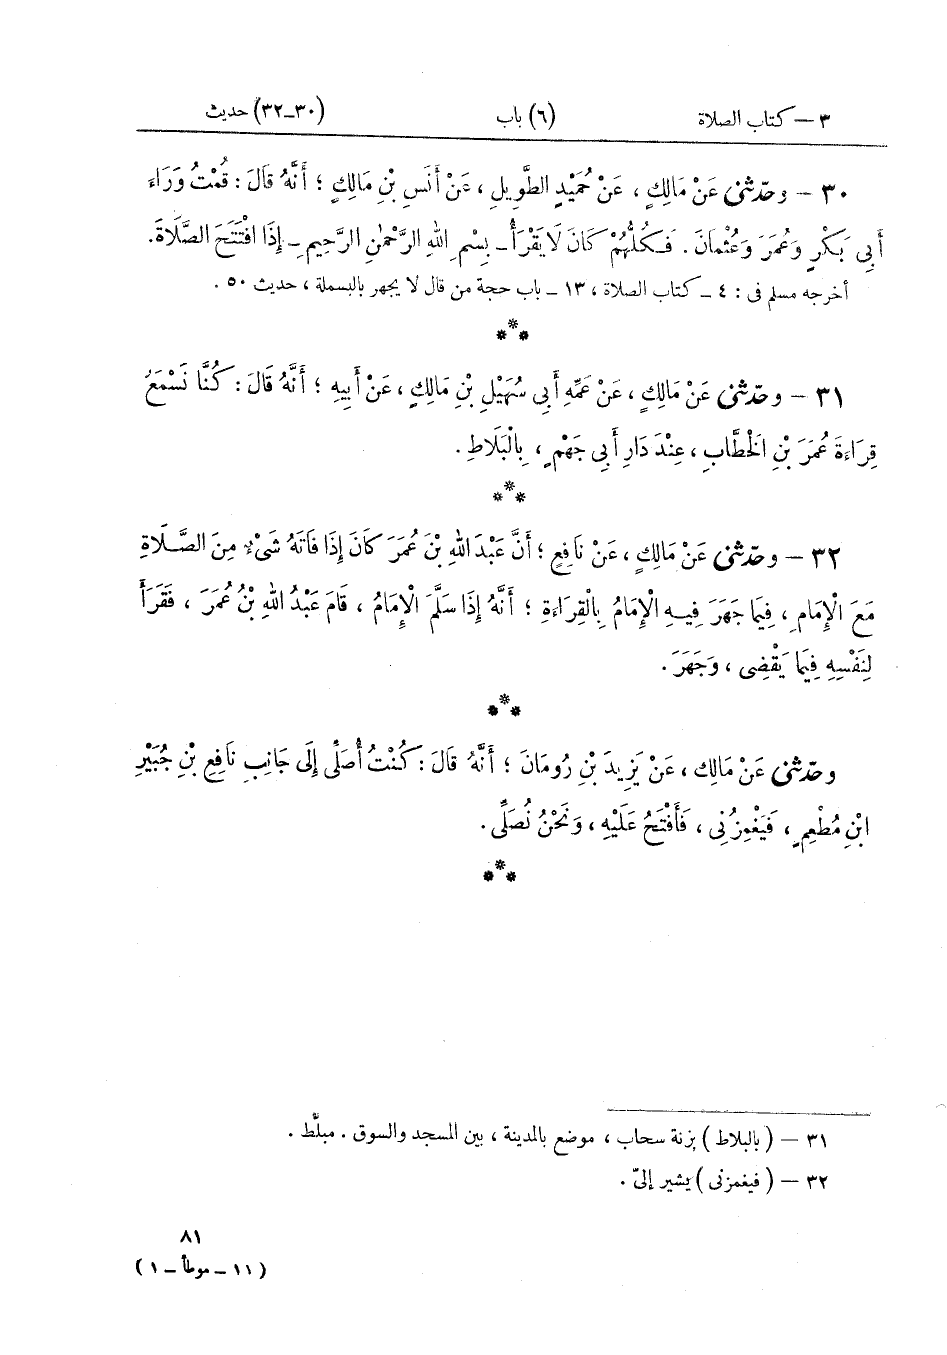 ٣ — كتاب الصلاة (٦) باب (٣٠ــ٣٢) حديث
٣٠ — وحدّثنى عَنْ مَالِكٍ ، عَنْ حُمَيْدٍ الطَّوِيلِ ، عَنْ أَنَسِ بْنِ مَالِكٍ ؛ أَنَّهُ قَالَ : قُمْتُ وَرَاءَ
أَبِى بَكْرٍ وَعُمَرَ وَعُثْمَانَ . فَكُلُّهُمْ كَانَ لَا يَقْرَأُ ــ بِسْمِ اللهِ الرَّحْمٰنِ الرَّحِيمِ ــ إِذَا افْتَتَحَ الصَّلَاةَ.
أخرجه مسلم فى : ٤ ــ كتاب الصلاة ، ١٣ ــ باب حجة من قال لا يجهر بالبسملة ، حديث ٥٠ .
***
٣١ — وحدّثنى عَنْ مَالِكٍ ، عَنْ عَمِّهِ أَبِى سُهَيْلِ بْنِ مَالِكٍ ، عَنْ أَبِيهِ ؛ أَنَّهُ قَالَ : كُنَّا نَسْمَعُ
قِرَاءَةَ عُمَرَ بْنِ الْخَطَّابِ ، عِنْدَ دَارِ أَبِى جَهْمٍ ، بِالْبَلَاطِ .
***
٣٢ — وحدّثنى عَنْ مَالِكٍ ، عَنْ نَافِعٍ ؛ أَنَّ عَبْدَ اللهِ بْنَ عُمَرَ كَانَ إِذَا فَاتَهُ شَىْءٌ مِنَ الصَّلَاةِ
مَعَ الْإِمَامِ ، فِيمَا جَهَرَ فِيهِ الْإِمَامُ بِالْقِرَاءَةِ ؛ أَنَّهُ إِذَا سَلَّمَ الْإِمَامُ ، قَامَ عَبْدُ اللهِ بْنُ عُمَرَ ، فَقَرَأَ
لِنَفْسِهِ فِيمَا يَقْضِى ، وَجَهَرَ .
***
وحدّثنى عَنْ مَالِك ، عَنْ يَزِيدَ بْنِ رُومَانَ ؛ أَنَّهُ قَالَ : كُنْتُ أُصَلِّى إِلَى جَانِبِ نَافِعِ بْنِ جُبَيْرِ
ابْنِ مُطْعِمٍ ، فَيَغْمِزُنِى ، فَأَفْتَحُ عَلَيْهِ ، وَنَحْنُ نُصَلِّى .
***
٣١ — (بالبلاط) بزنة سحاب ، موضع بالمدينة ، بين المسجد والسوق . مبلَّط .
٣٢ — (فيغمزنى) يشير إلىّ .
٨١
(١١ ــ موطأ ــ ١)